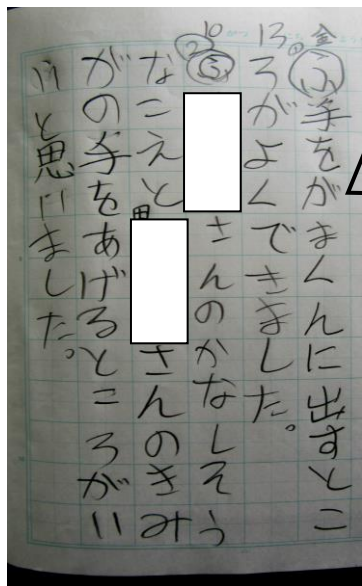 金
ふ手をがまくんに出すとこ
13 ①
ろがよくできました。
10 ②
ふ さんのかなしそう
なこえと さんのきみ
がの手をあげるところがい
いと思いました。